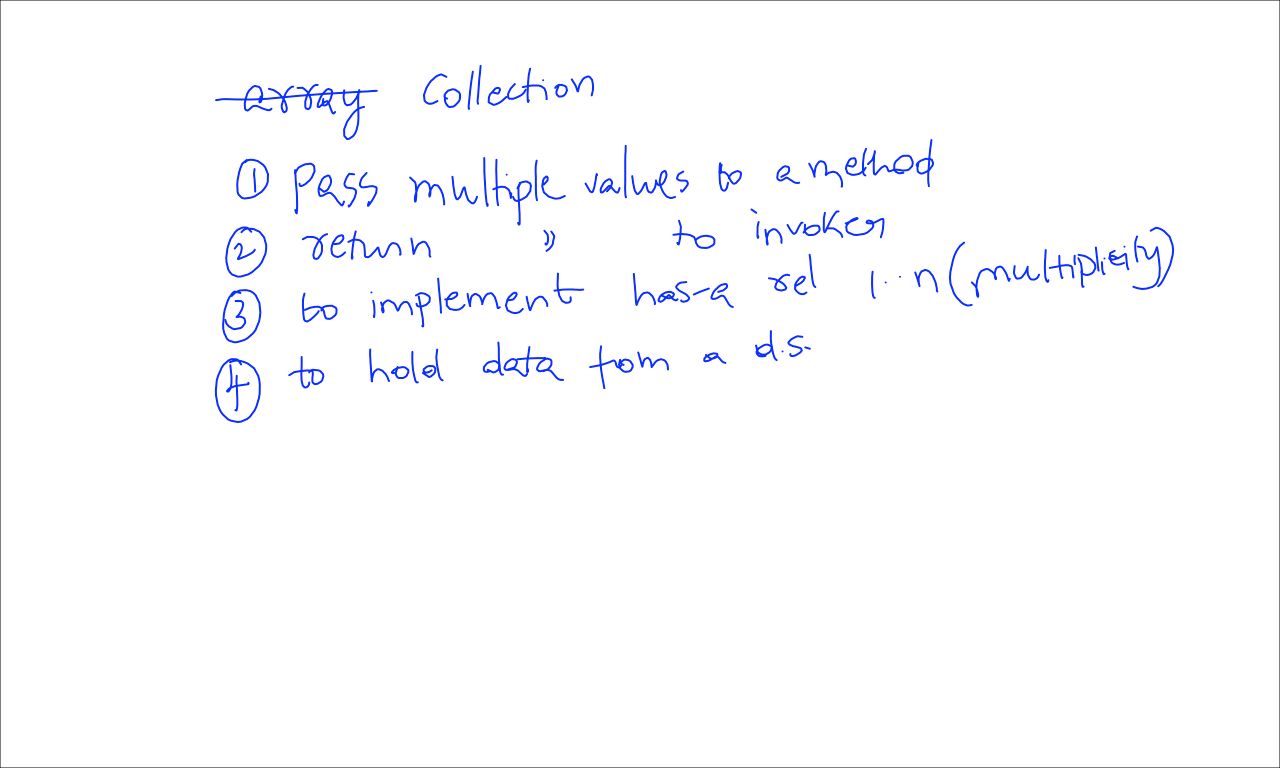 array Collection
① Pass multiple values to a method
② return " to invoker
③ to implement has-a rel 1..n (multiplicity)
④ to hold data from a d.s.